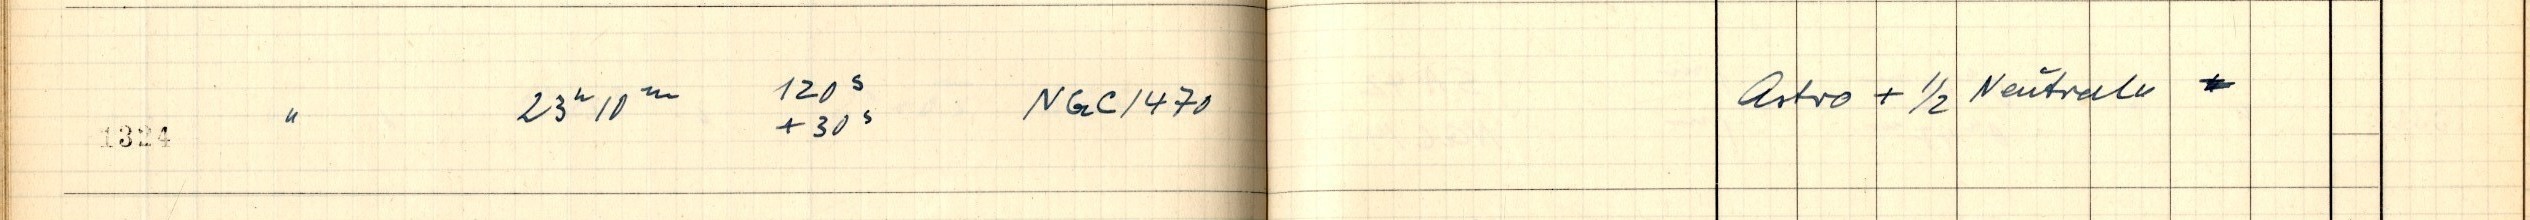 1324 " 23h 10m 120s NGC 1470 Astro + 1/2 Neutral
+ 30s